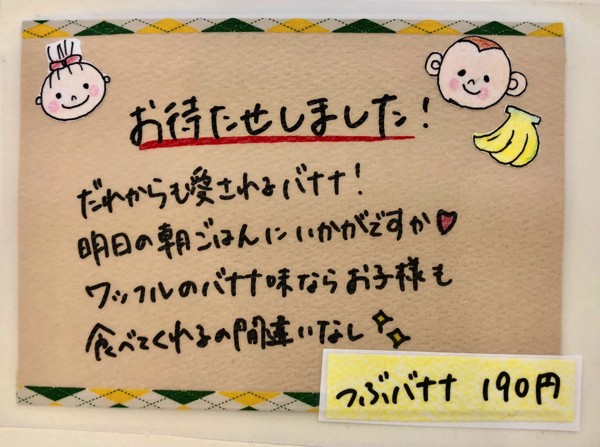 お待たせしました！
だれからも愛されるバナナ！
明日の朝ごはんにいかがですか
ワッフルのバナナ味ならお子様も
食べてくれるの間違いなし
つぶバナナ 190円